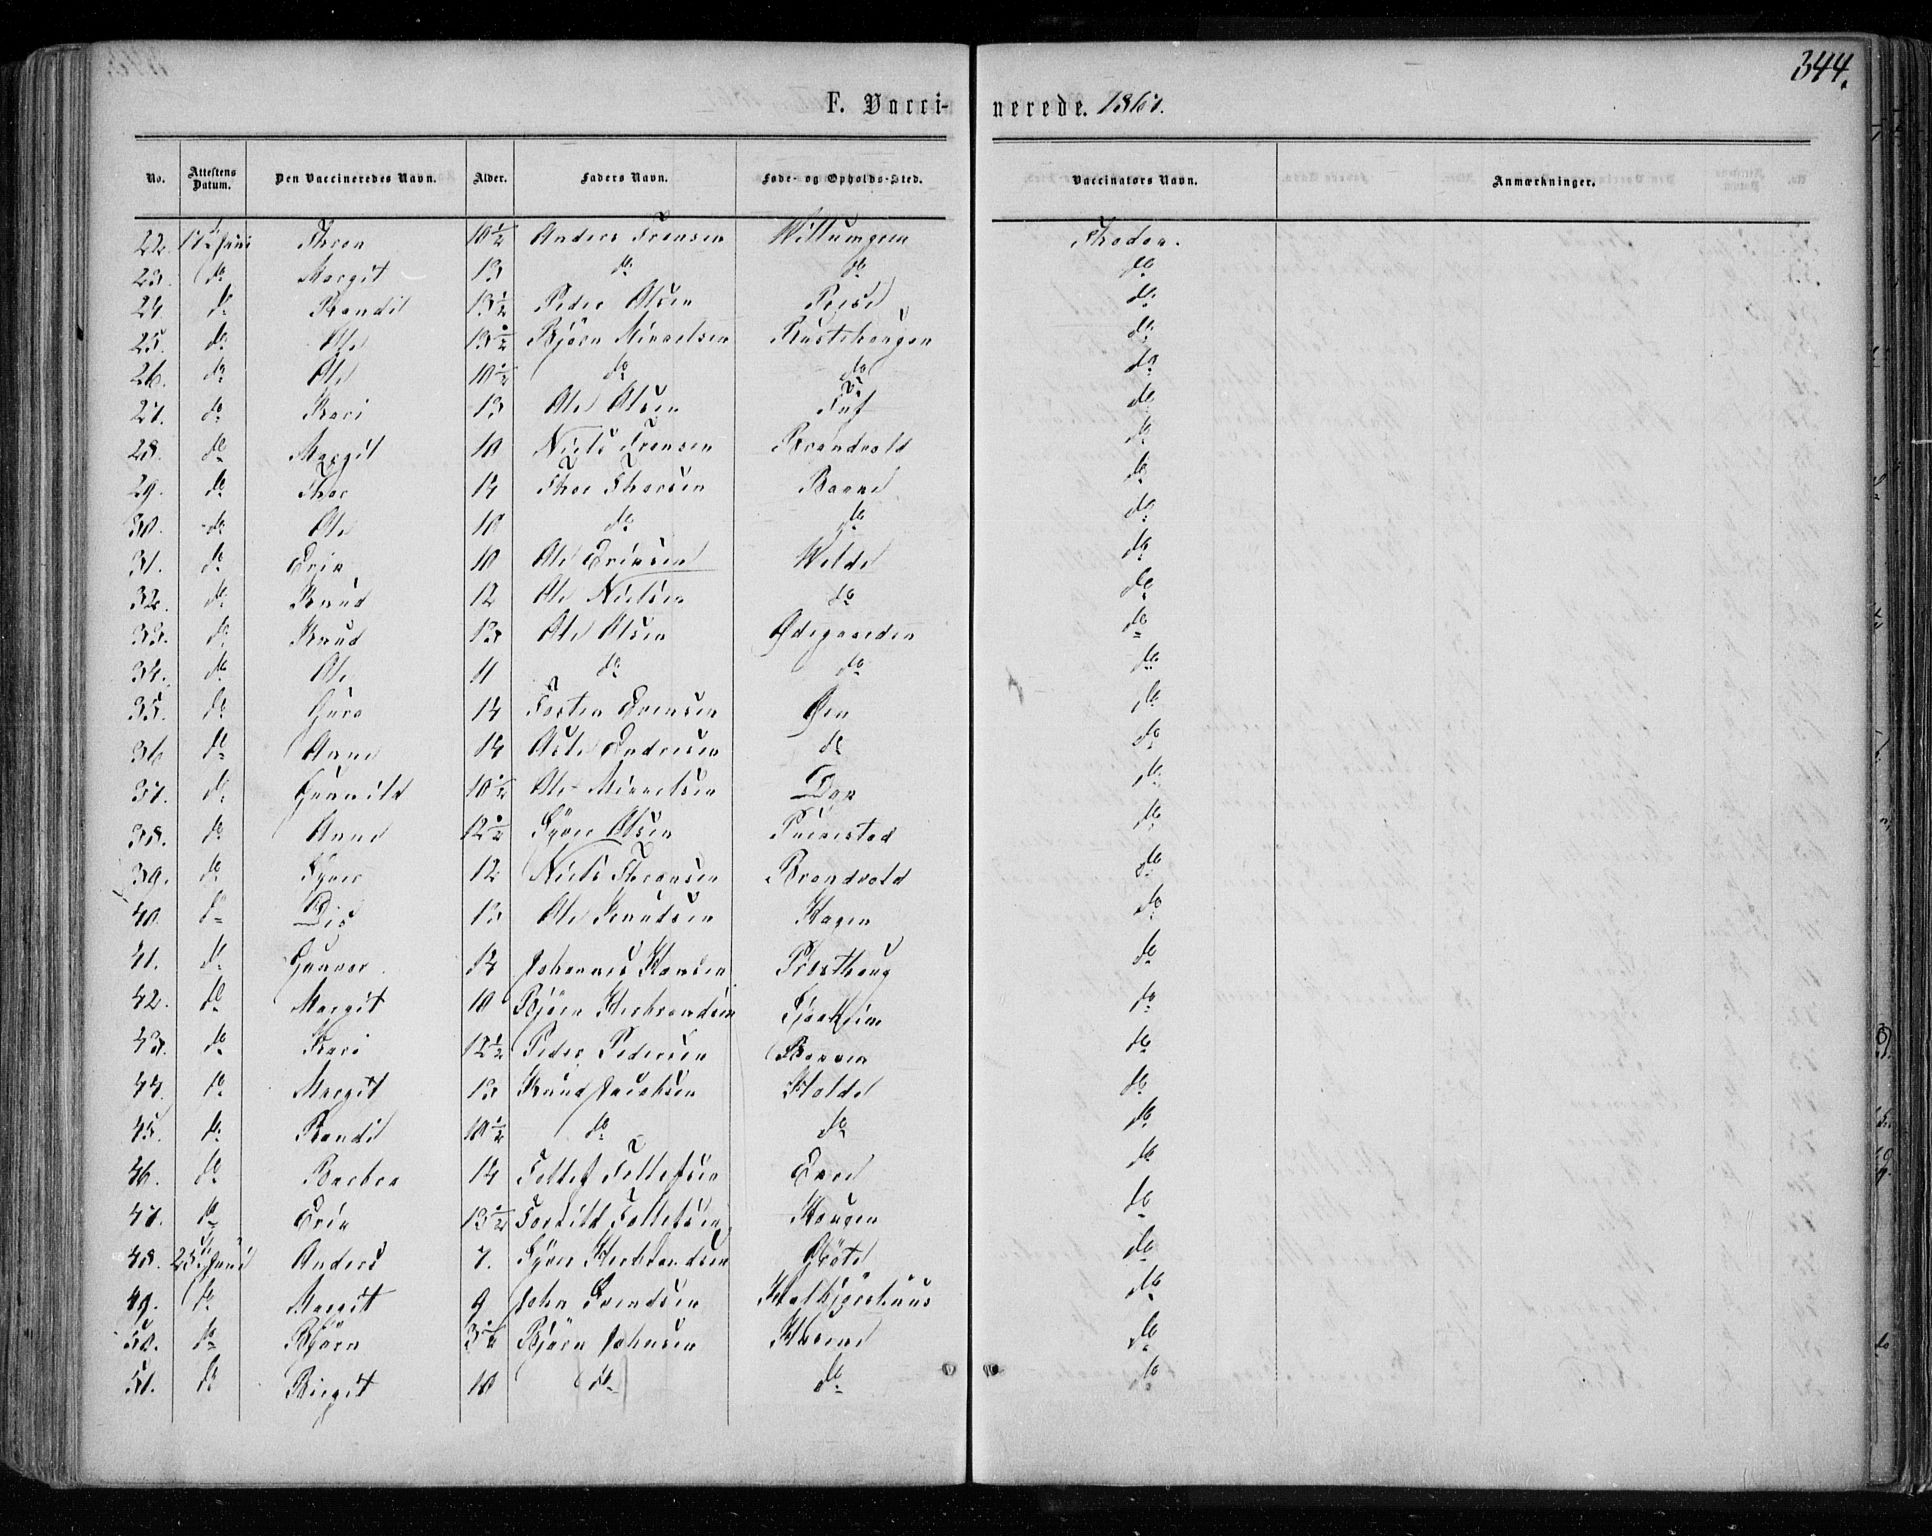 344.
F. Vacci-nerede. 1867.
No. Attestens Datum. Den Vaccineredes Navn. Alder. Faders Navn. Føde- og Opholds-Sted. Vaccinators Navn. Anmærkninger.
22. 17 Juni Thron 10½ Anders Tronsen
23. do Margit 13 do do do
24 do Randi 13½ Peder Olsen do
25. do Ole 13½ Björn do
26. do Ole 10½ do do do
27. do Kari 13 Ole Olsen Tuf do
28. do Margit 10 Niels Tronsen Brandvold do
29. do Thor 14 Thor Thorsen do
30. do Ole 10 do do do
31. do Erik 10 Ole Eriksen Velde do
32. do Knud 12 Ole Nielsen do do
33. do Knud 13 Ole Olsen Ødegaarden do
34. do Ole 11 do do do
35. do Guro 14 Tosten Evensen Øen do
36 do Anne 14 Asle Endresen do do
37. do Gunnild 10½ Ole Mikkelsen do
38. do Anne 12½ Syver Olsen do
39. do Syver 12 Niels Thronsen Brandvold do
40. do 13 Ole Knudsen Hagen do
41. do Gunvor 14 Johannes Hansen Præsthaug do
42. do Margit 10 Björn Herbrandsen do
43. do Kari 12½ Peder Pedersen do
44. do Margit 13 Knud Jacobsen Holde do
45. do Randi 10½ do do do
46. do Barbra 14 Tollef Tollefsen do
47. do Erik 13½ Torkild Tollefsen Haugen do
48. 25 Juni Anders 7. Syver Herbrandsen do
49. do Margit 9 John Svendsen do
50. do Björn 3½ Björn Johnsen do
51. do Birgit 10 do do do